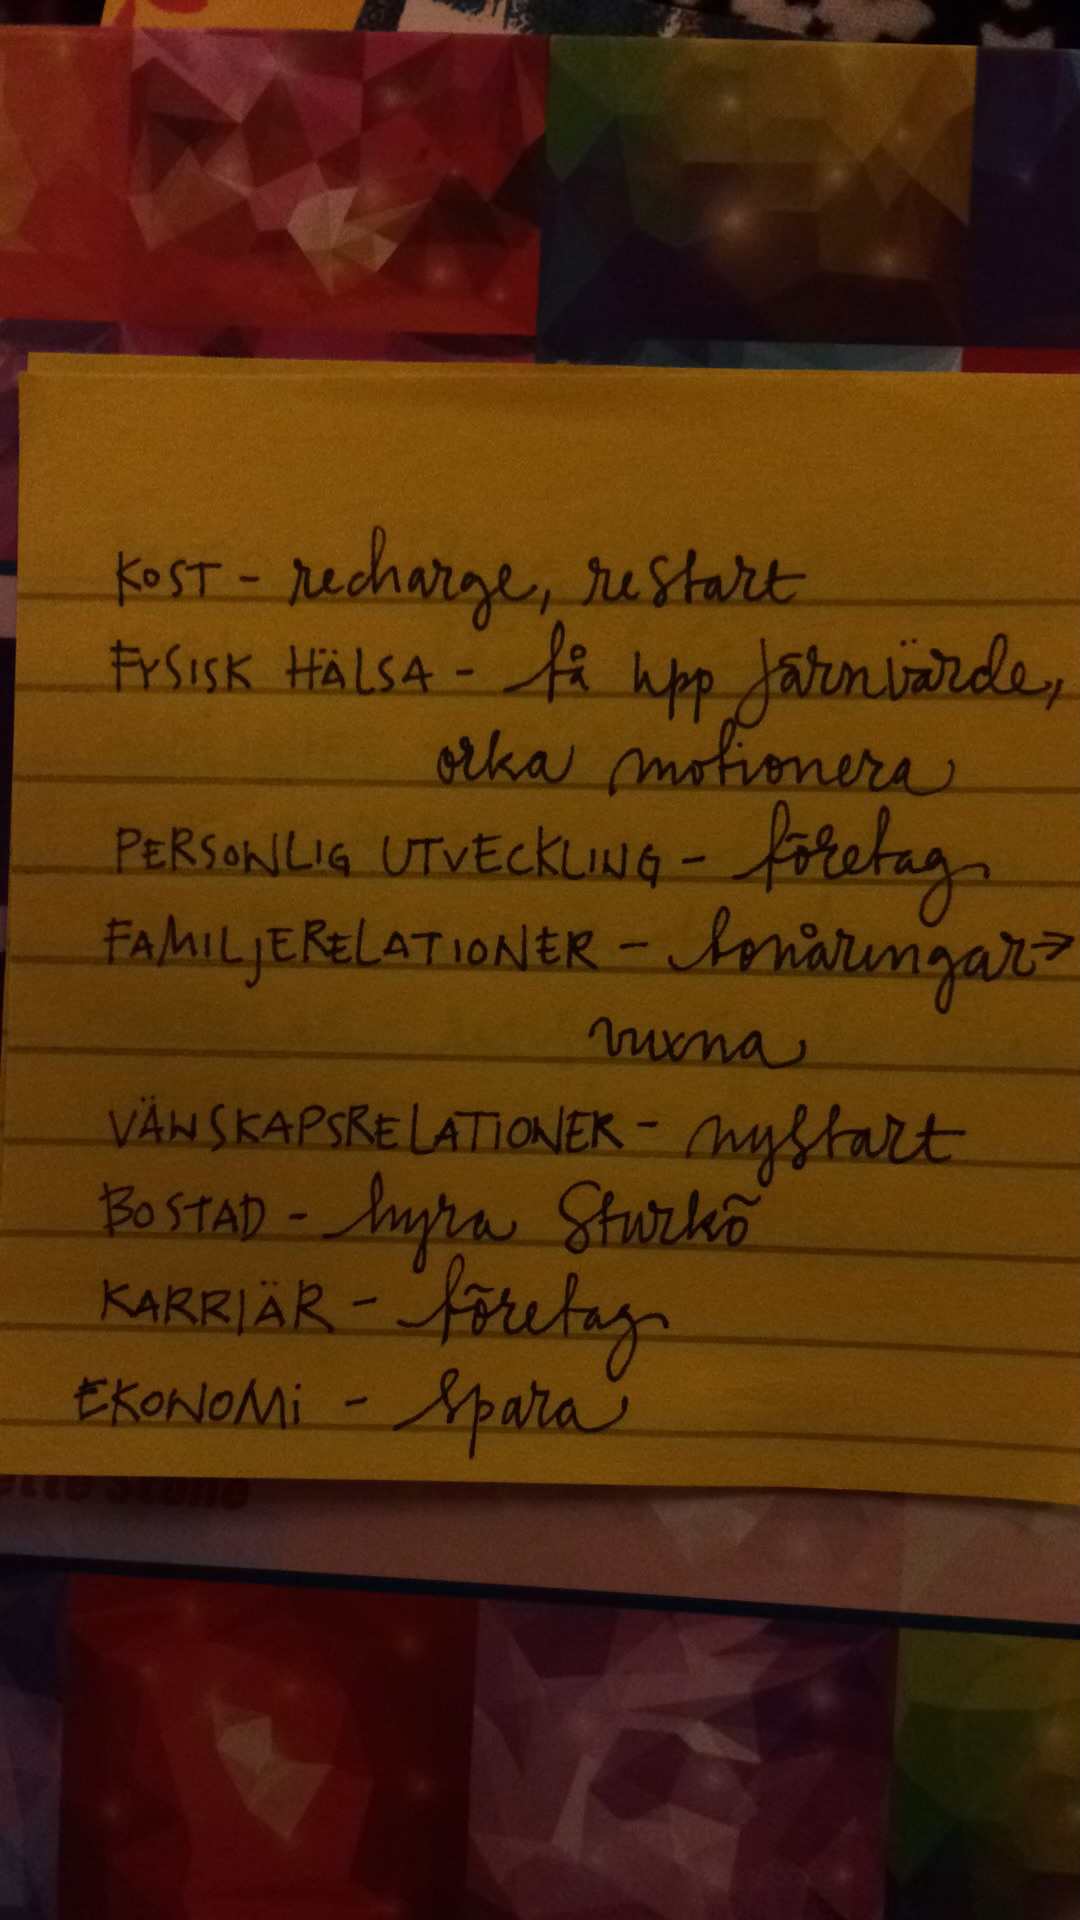 KOST - recharge, restart
FYSISK HÄLSA - få upp järnvärde,
orka motionera
PERSONLIG UTVECKLING - företag
FAMILJERELATIONER - tonåringar→
vuxna
VÄNSKAPSRELATIONER - nystart
BOSTAD - hyra Sturkö
KARRIÄR - företag
EKONOMI - spara
ette Stone